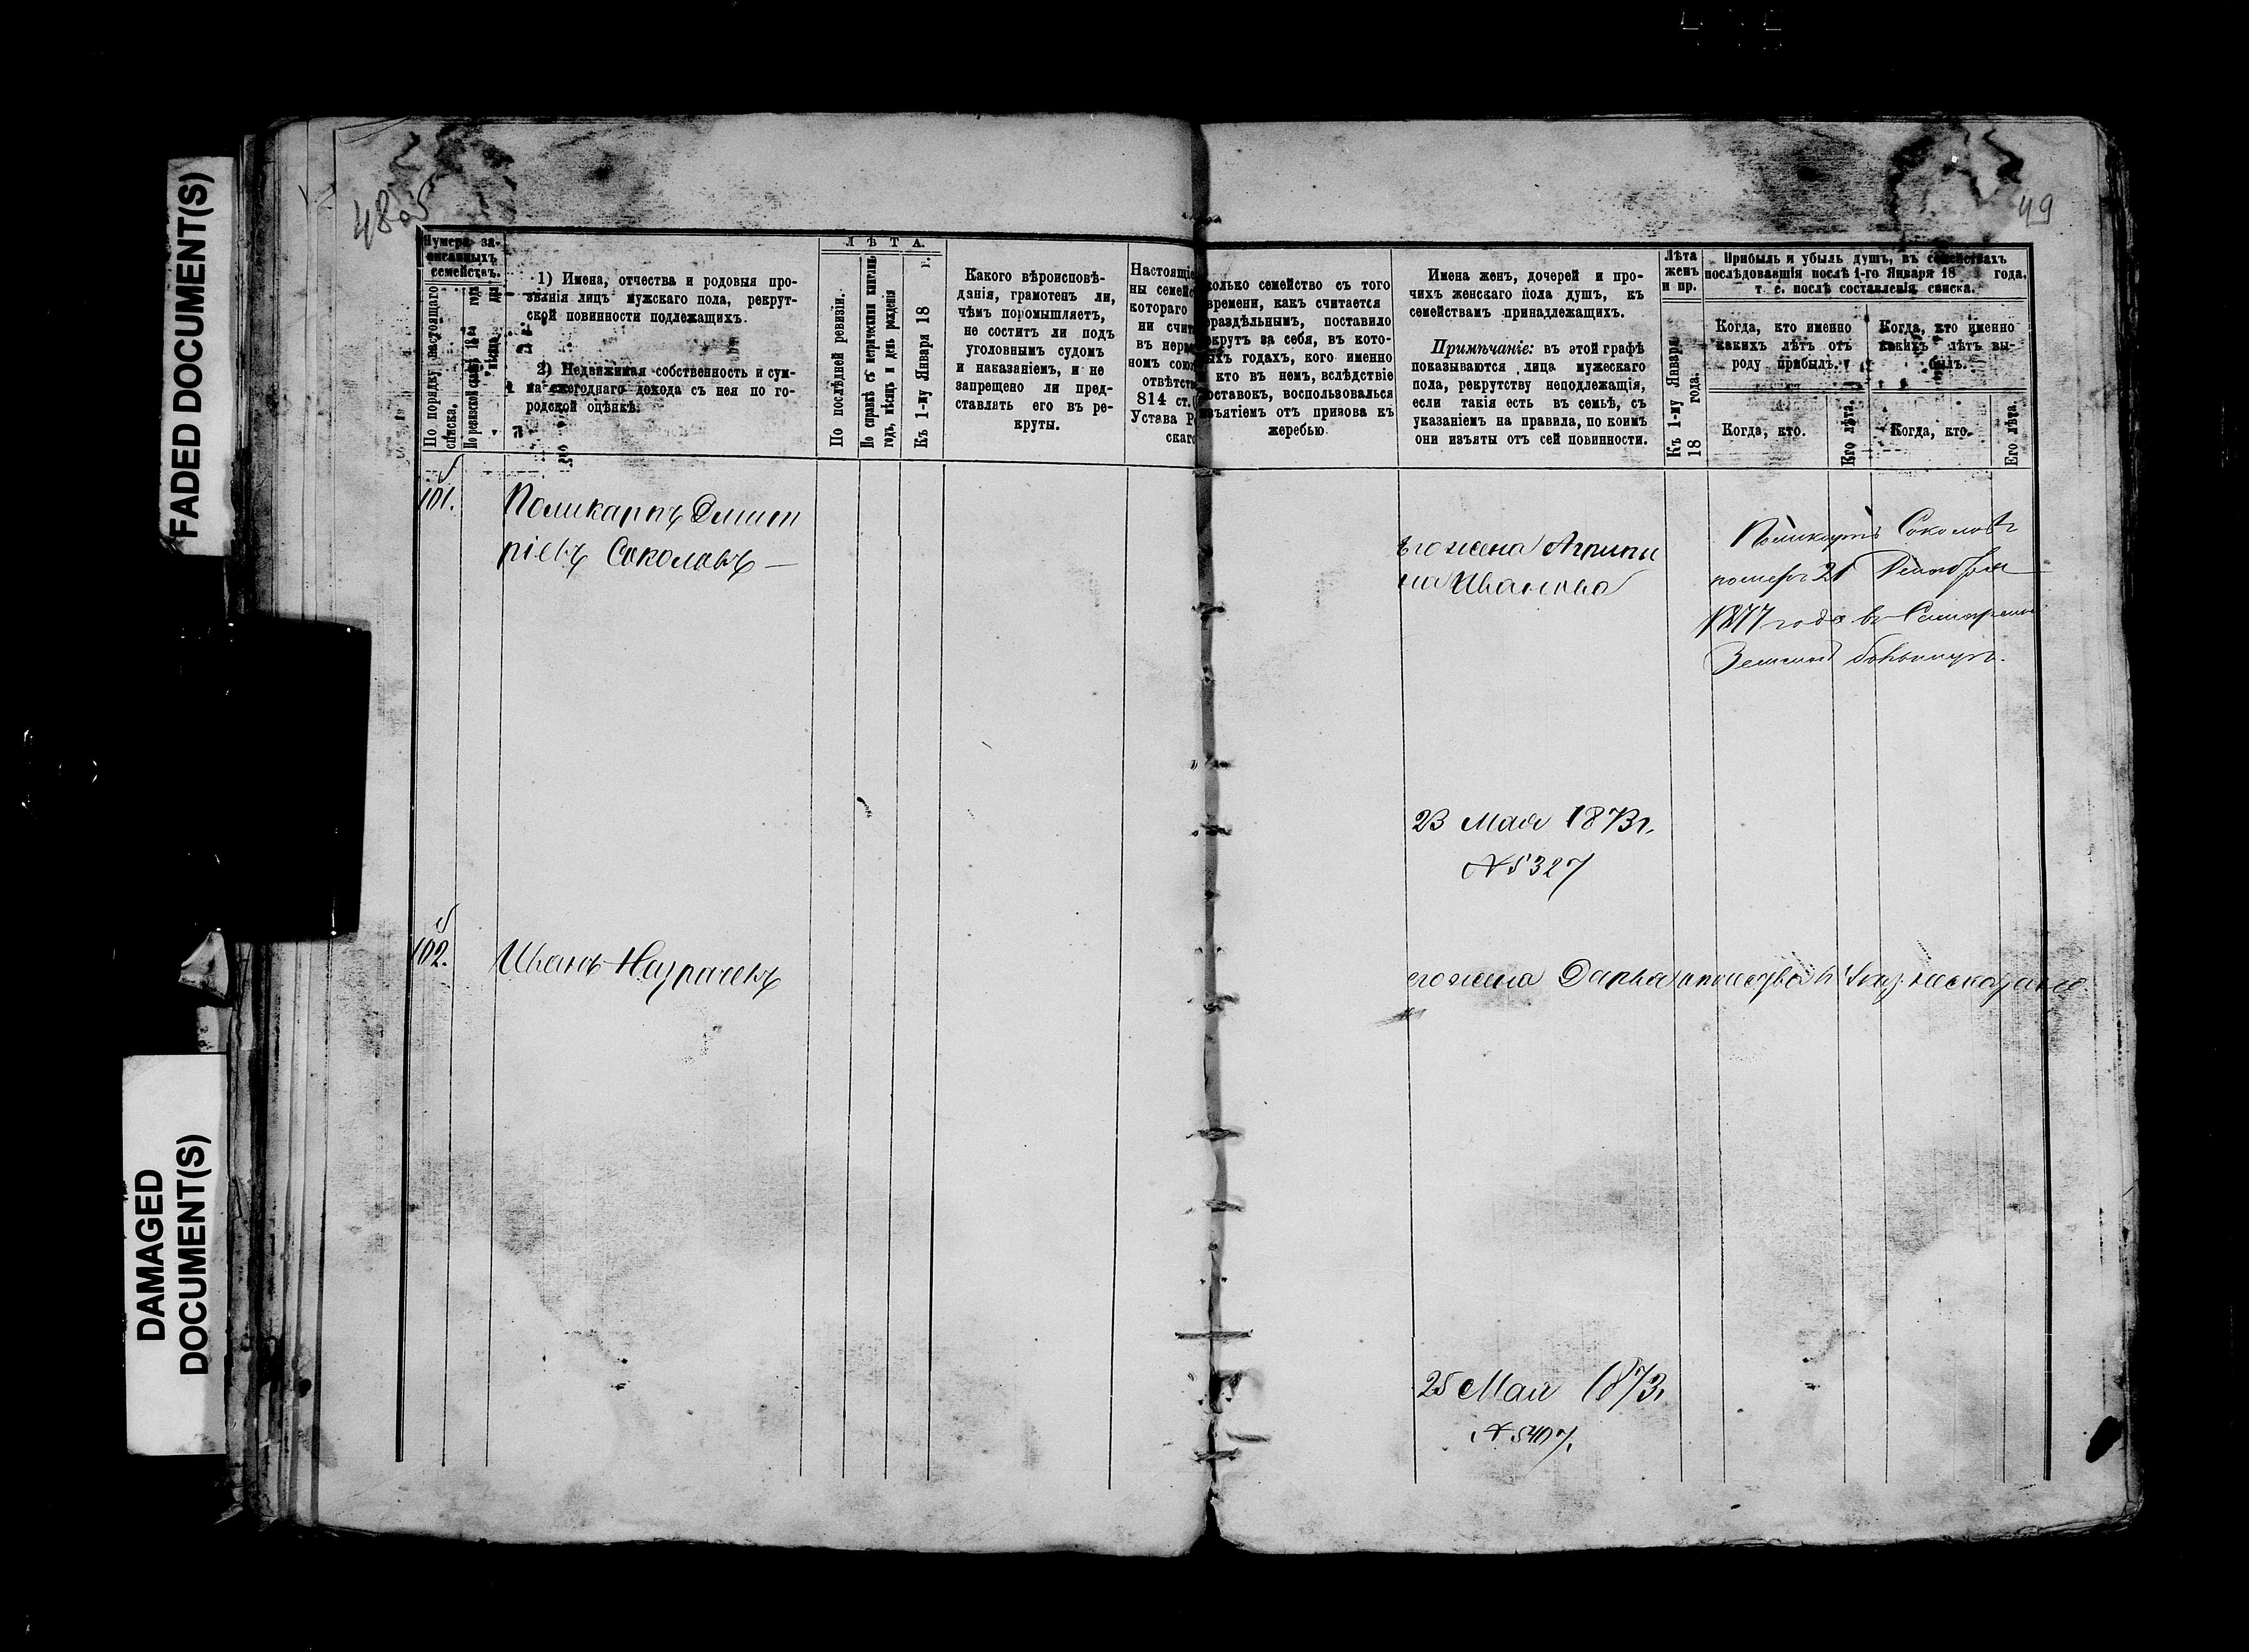 FADED DOCUMENT(S)
DAMAGED
DOCUMENT(S)
48об
Нумера за-
писанныхъ
семействъ.
По порядку настоящаго
списка.
По ревизской сказкѣ 18 года
мѣсяца дня
1) Имена, отчества и родовыя про-
званія лицъ мужскаго пола, рекрут-
ской повинности подлежащихъ.
2) Недвижимая собственность и сум-
ма ежегоднаго дохода съ нея по го-
родской оцѣнкѣ.
ЛѢТА.
По послѣдней ревизіи.
По справкѣ съ метрическими книгами
годъ, мѣсяцъ и день рожденія
Къ 1-му Января 18 г.
Какого вѣроисповѣ-
данія, грамотенъ ли,
чѣмъ поромышляетъ,
не соститъ ли подъ
уголовнымъ судомъ
и наказаніемъ, и не
запрещено ли пред-
ставлять его въ ре-
круты.
Настоящіе
ны семейс
котораго
ни счит
въ нер
номъ союз
отвѣтств
814 ст.
Устава Р
скаго
101.
Поликарпъ Дмит
ріевъ Соколовъ —
102.
Иванъ
49
колько семейство съ того
времени, какъ считается
раздѣльнымъ, поставило
крутъ за себя, въ кото-
ыхъ годахъ, кого именно
кто въ немъ, вслѣдствіе
оставокъ, воспользовался
изъятіемъ отъ призова къ
жеребью
Имена женъ, дочерей и про-
чихъ женскаго пола душъ, къ
семействамъ принадлежащихъ.
Примѣчаніе: въ этой графѣ
показываются лица мужескаго
пола, рекрутству неподлежащія,
если такія есть въ семьѣ, съ
указаніемъ на правила, по коимъ
они изъяты отъ сей повинности.
Лѣта
женъ
и пр.
Къ 1-му Января
18 года.
Прибыль и убыль душъ, въ семействахъ
послѣдовавшія послѣ 1-го Января 18 года,
т. е. послѣ составленія списка.
Когда, кто именно
какихъ лѣтъ отъ
роду прибылъ.
Когда, кто именно
какихъ лѣтъ вы-
былъ.
Когда, кто.
Его лѣта.
Когда, кто.
Его лѣта.
его жена Агрипи
на Иванова
Поликарпъ Соколовъ
померъ 21
1877 года въ
Земской больницѣ.
23 Мая 1873 г.
№ 5327
его жена Дарья отчество въ указ. несказано
25 Мая 1873.
№ 5407.